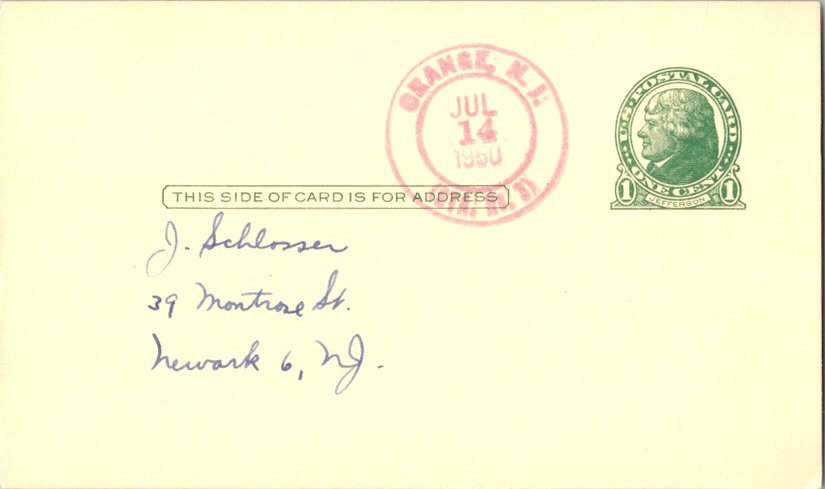 ORANGE, N. J.
JUL
14
1950
(STA. NO. 9)
U.S. POSTAL CARD
ONE CENT
1 1
JEFFERSON
THIS SIDE OF CARD IS FOR ADDRESS
J. Schlosser
39 Montrose St.
Newark 6, NJ.